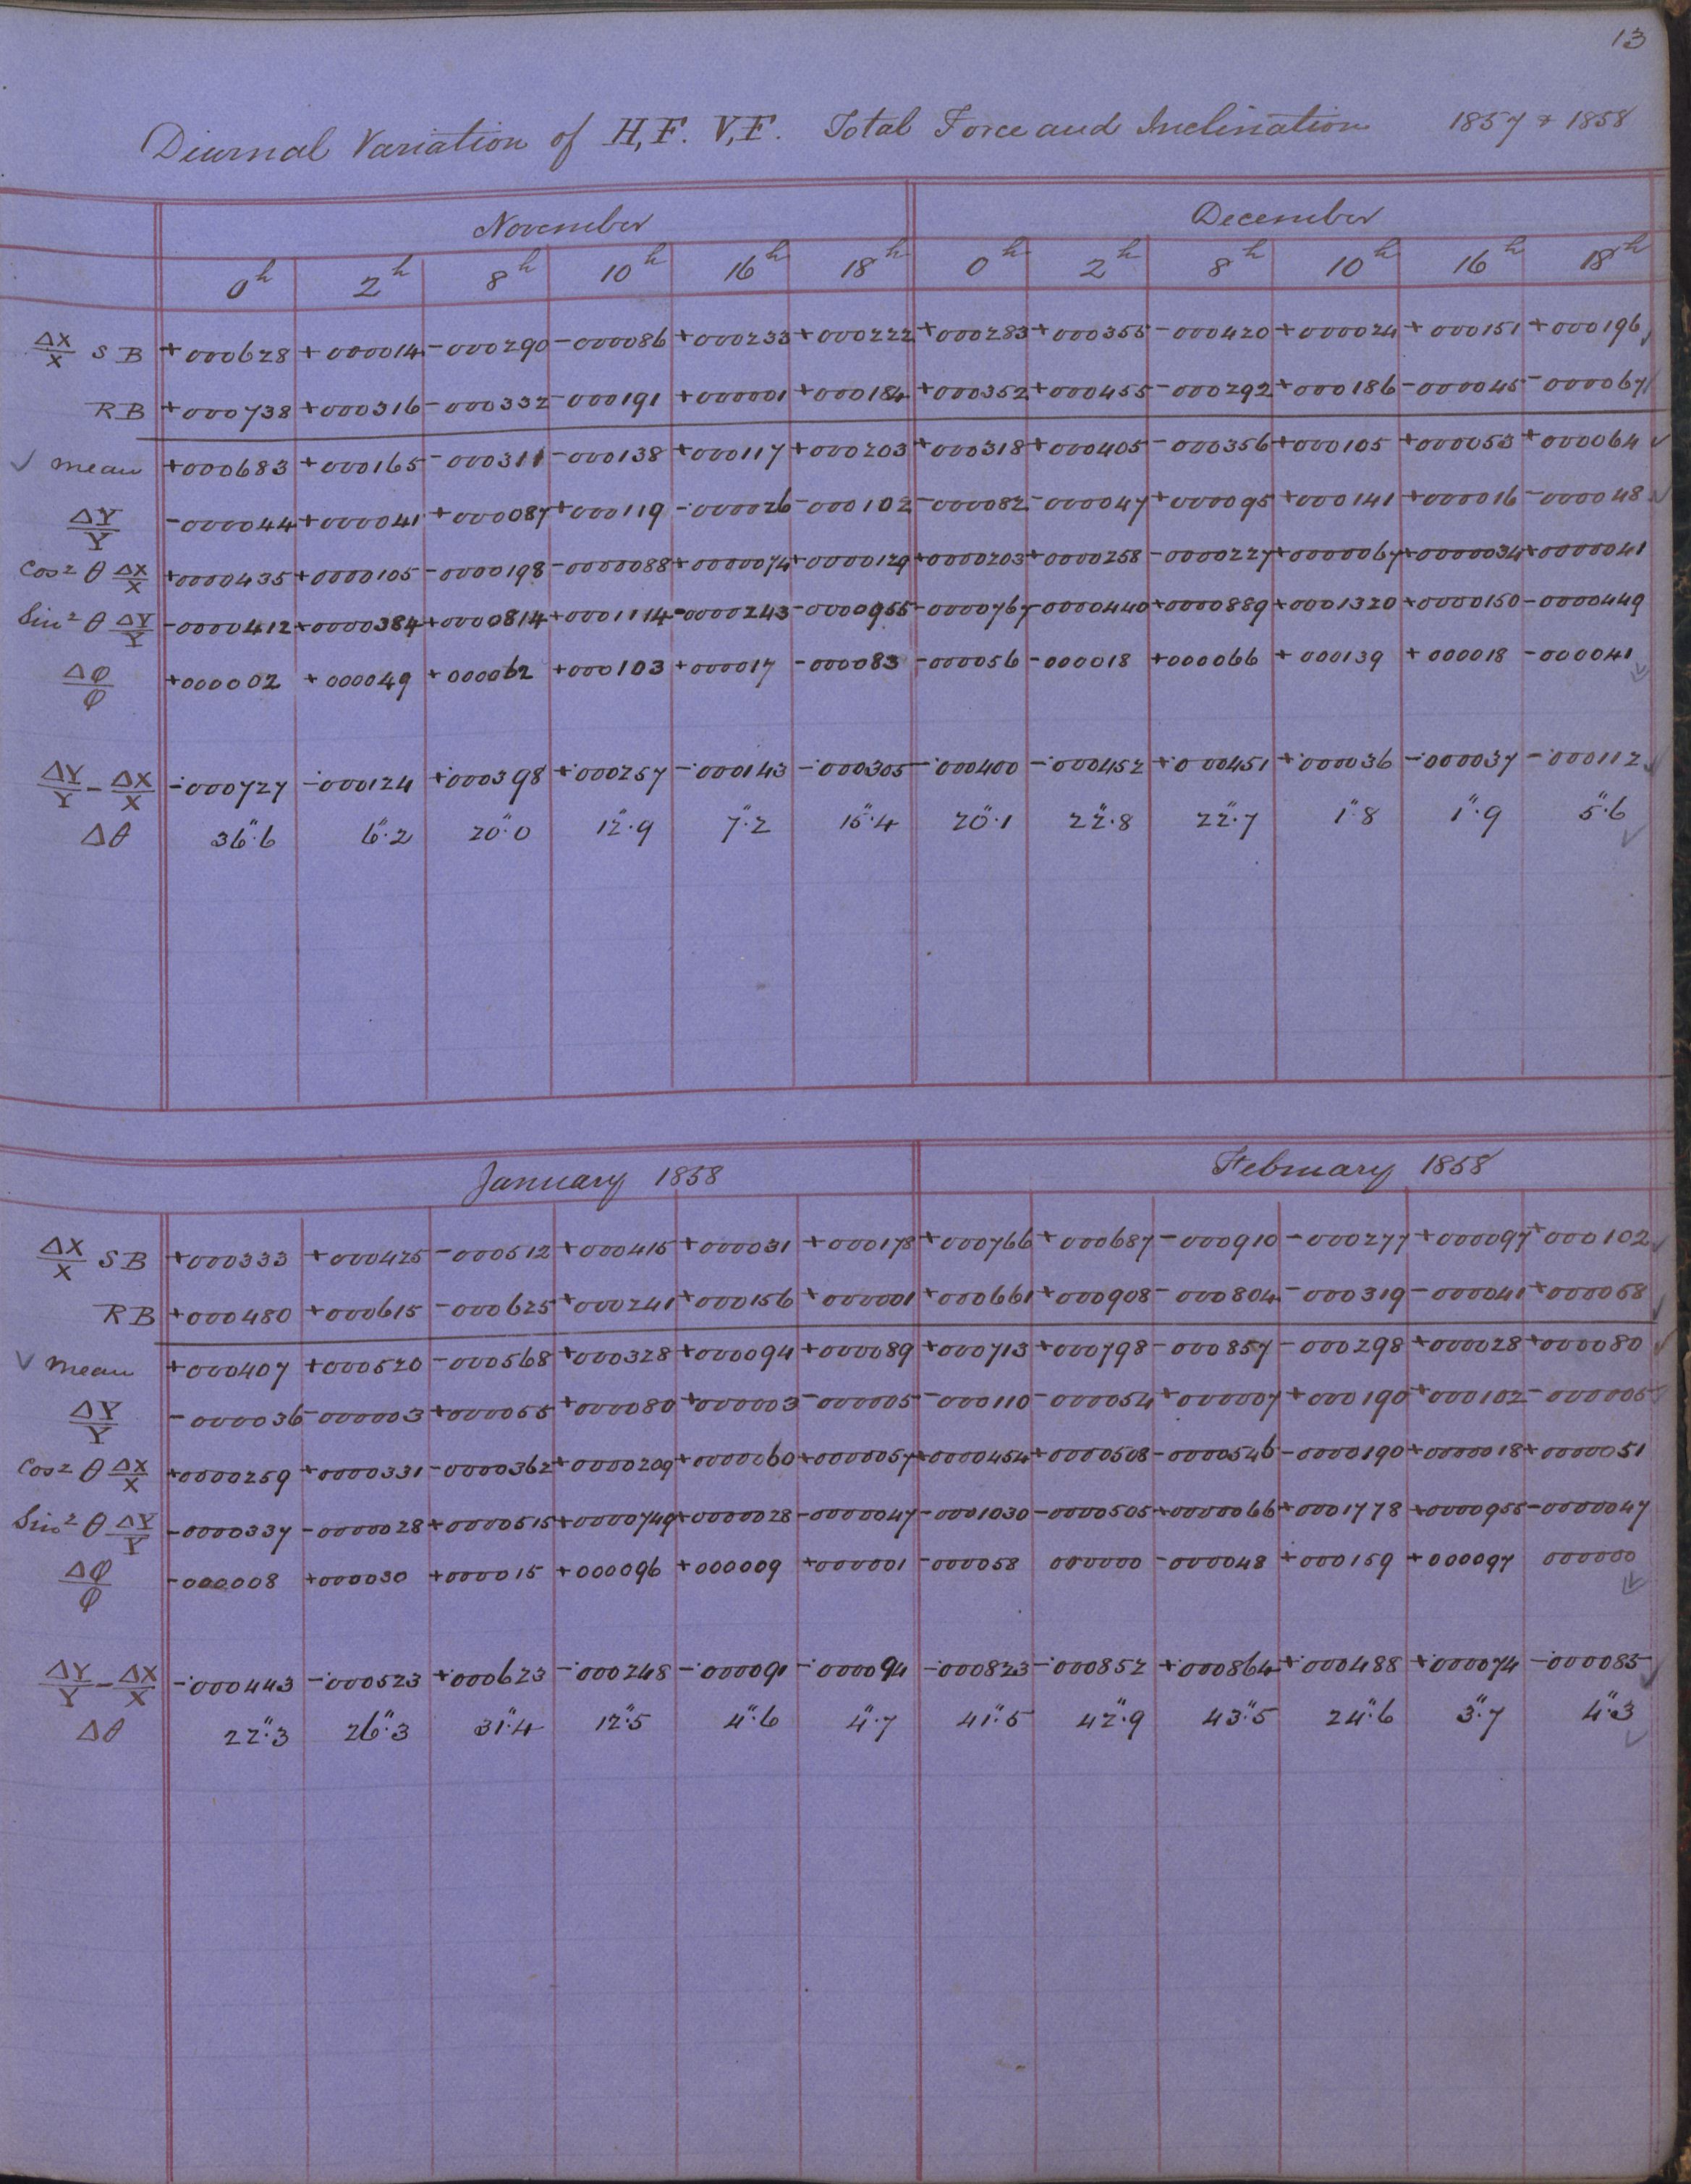 13
Diurnal Variation of H,F. V,F. Total Force and Inclination 1857 & 1858
November December
0h 2h 8h 10h 16h 18h 0h 2h 8h 10h 16h 18h
ΔX/X S B +000628 +000014 -000290 -000086 +000233 +000222 +000283 +000355 -000420 +000024 +000151 +000196
R B +000738 +000316 -000332 -000191 +000001 +000184 +000352 +000455 -000292 +000186 -000045 -000067
✓ Mean +000683 +000165 -000311 -000138 +000117 +000203 +000318 +000405 -000356 +000105 +000053 +000064 ✓
ΔY/Y -000044 +000041 +000087 +000119 -000026 -000102 -000082 -000047 +000095 +000141 +000016 -000048
Cos² θ ΔX/X +0000435 +0000105 -0000198 -0000088 +0000074 +0000129 +0000203 +0000258 -0000227 +0000067 +0000034 +0000041
Sin² θ ΔY/Y -0000412 +0000384 +0000814 +0001114 -0000243 -0000955 -0000767 -0000440 +0000889 +0001320 +0000150 -0000449
Δφ/φ +000002 +000049 +000062 +000103 +000017 -000083 -000056 -000018 +000066 +000139 +000018 -000041
ΔY/Y - ΔX/X -·000727 -·000124 +·000398 +·000257 -·000143 -·000305 -·000400 -·000452 +·000451 +·000036 -·000037 -·000112
Δθ 36".6 6".2 20".0 12".9 7".2 15".4 20".1 22".8 22".7 1".8 1".9 5".6
January 1858 February 1858
ΔX/X S B +000333 +000425 -000512 +000415 +000031 +000178 +000766 +000687 -000910 -000277 +000097 +000102
R B +000480 +000615 -000625 +000241 +000156 +000001 +000661 +000908 -000804 -000319 -000041 +000058
✓ Mean +000407 +000520 -000568 +000328 +000094 +000089 +000713 +000798 -000857 -000298 +000028 +000080 ✓
ΔY/Y -000036 -000003 +000055 +000080 +000003 -000005 -000110 -000054 +000007 +000190 +000102 -000005
Cos² θ ΔX/X +0000259 +0000331 -0000362 +0000209 +0000060 +0000057 +0000454 +0000508 -0000546 -0000190 +0000018 +0000051
Sin² θ ΔY/Y -0000337 -0000028 +0000515 +0000749 +0000028 -0000047 -0001030 -0000505 +0000066 +0001778 +0000955 -0000047
Δφ/φ -000008 +000030 +000015 +000096 +000009 +000001 -000058 000000 -000048 +000159 +000097 000000
ΔY/Y - ΔX/X -·000443 -·000523 +·000623 -·000248 -·000091 -·000094 -·000823 -·000852 +·000864 +·000488 +·000074 -·000085
Δθ 22".3 26".3 31".4 12".5 4".6 4".7 41".5 42".9 43".5 24".6 3".7 4".3